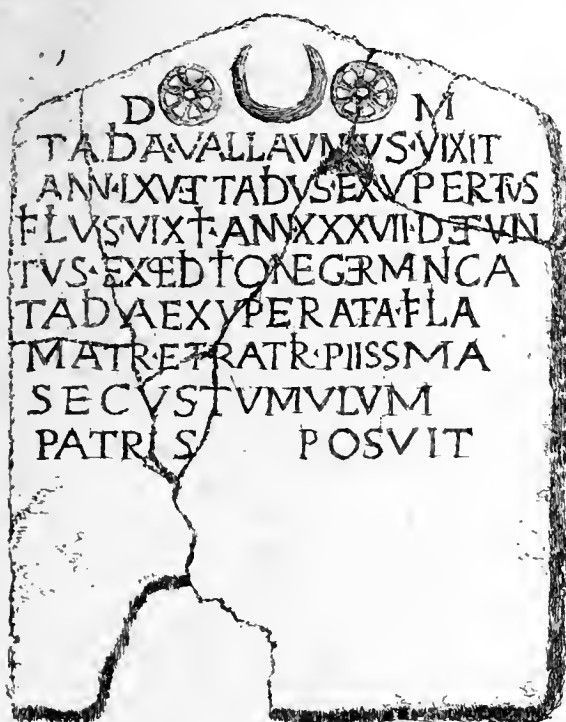 D M
TADIA·VALLAVNIVS·VIXIT
ANN·LXV ET TADIVS·EXVPERTVS
FILIVS·VIXIT·ANN XXXVII·DEFVN
TVS·EXPEDITIONE GERMANICA
TADIA EXVPERATA·FILIA
MATRI·ET FRATRI·PIISSIMA
SECVS TVMVLVM
PATRIS POSVIT